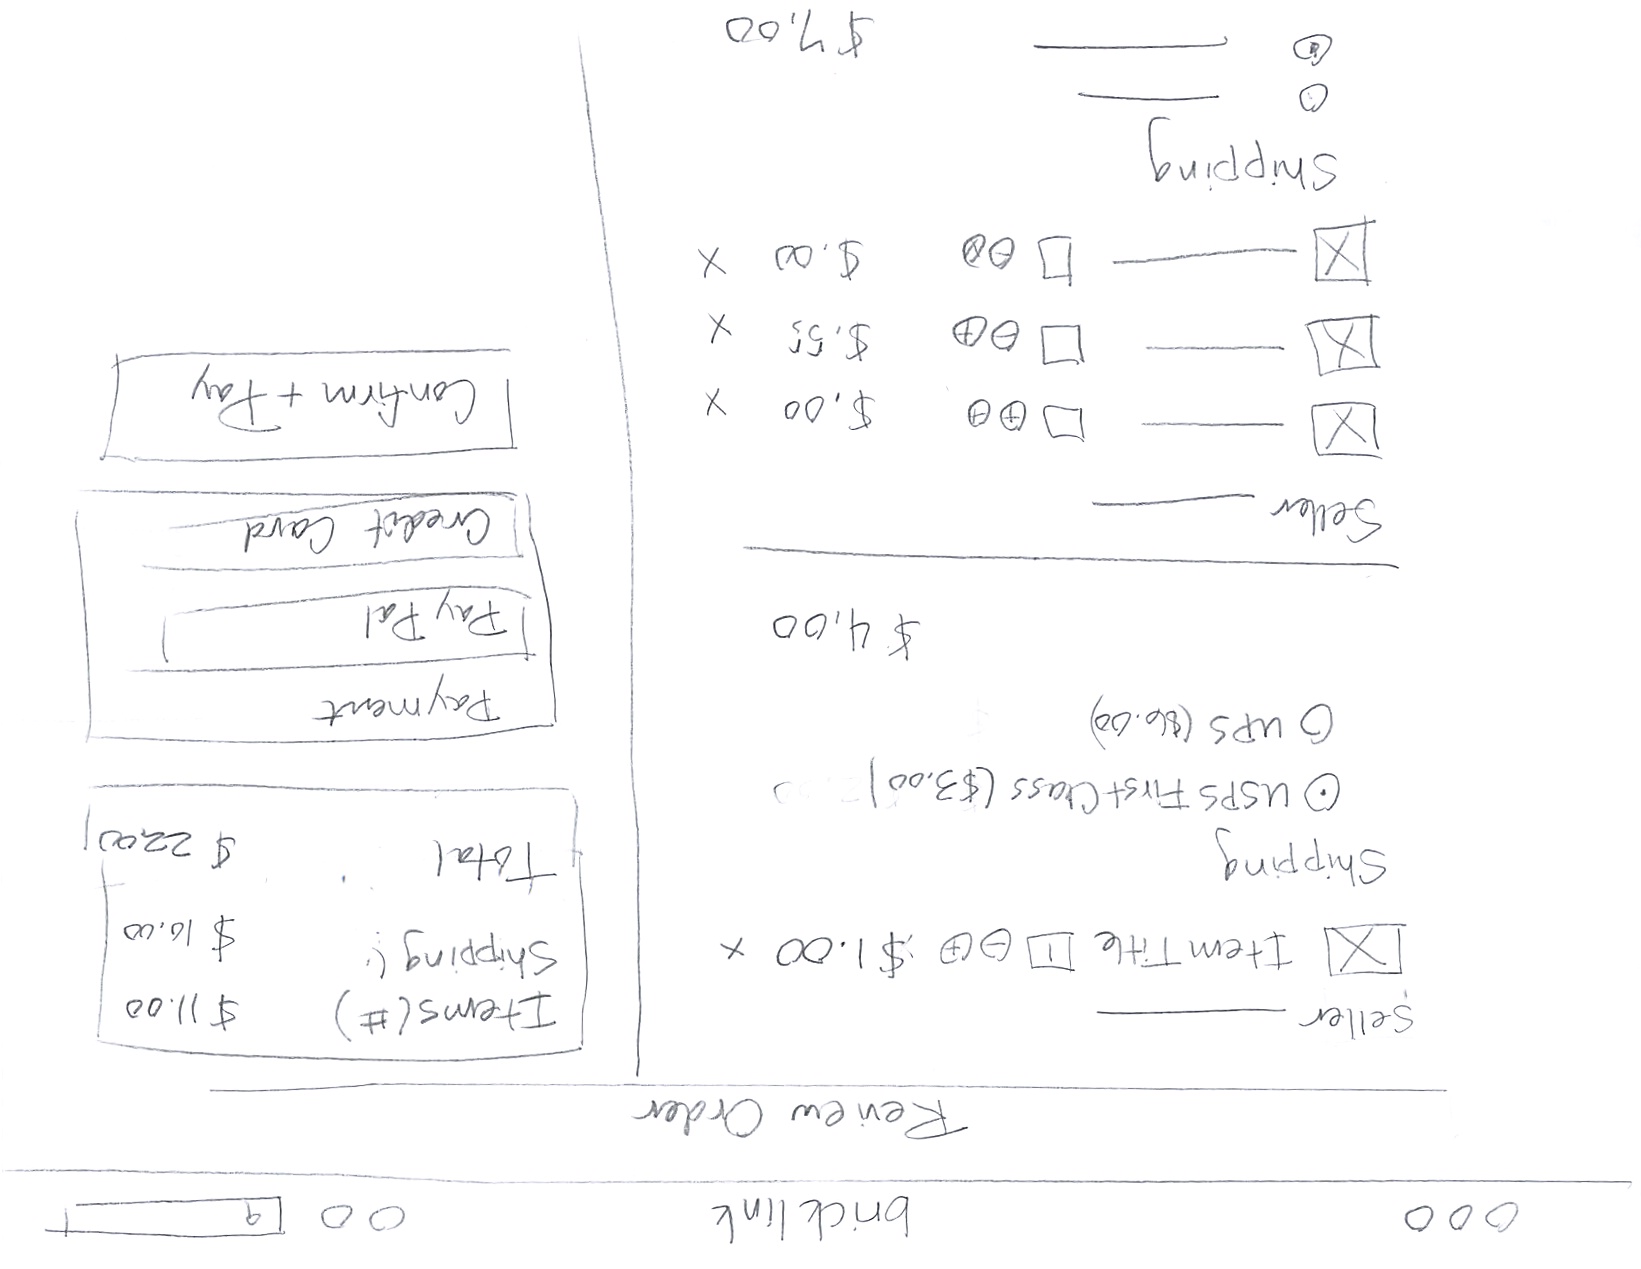 bricklink
Review Order
Seller
Item Title 1 $1.00 x
Shipping
USPS First Class ($3.00)
UPS ($6.00)
$4.00
Seller
$.00 x
$.55 x
$.00 x
Shipping
$7.00
Items(#) $11.00
Shipping $10.00
Total $22.00
Payment
PayPal
Credit Card
Confirm + Pay